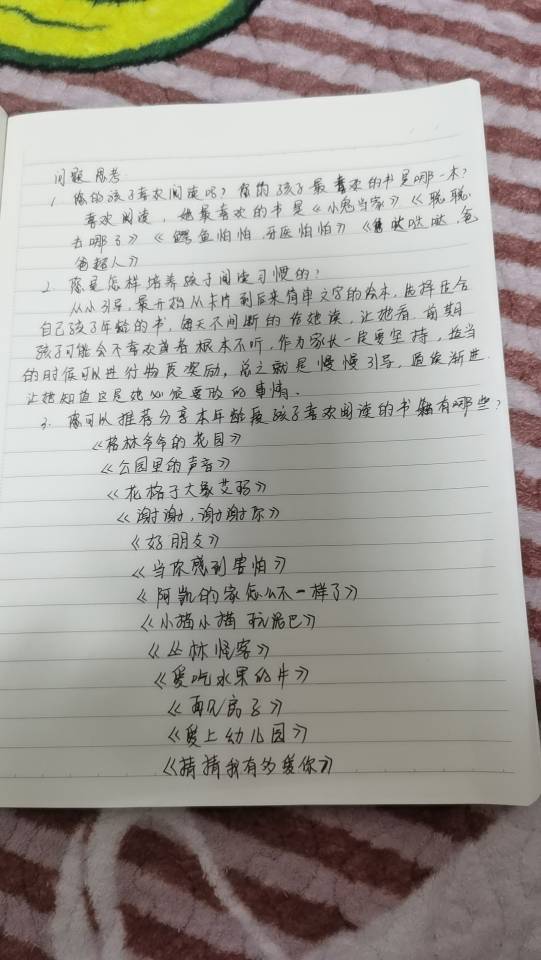 问题思考
1 您的孩子喜欢阅读吗？您的孩子最喜欢的书是哪一本？
喜欢阅读，她最喜欢的书是《小鬼当家》《聪聪
去哪了》《鳄鱼怕怕 牙医怕怕》《哒哒哒，爸
爸超人》
2 您是怎样培养孩子阅读习惯的？
从小引导，最开始从卡片到后来简单文字的绘本，选择适合
自己孩子年龄的书，每天不间断的给她读，让她看，前期
孩子可能会不喜欢或者根本不听，作为家长一定要坚持，适当
的时候可以进行物质奖励，总之就是慢慢引导，循序渐进
让她知道这是她必须要做的事情。
3. 您可以推荐分享本年龄段孩子喜欢阅读的书籍有哪些？
《格林爷爷的花园》
《公园里的声音》
《花格子大象艾玛》
《谢谢，谢谢你》
《好朋友》
《当你感到害怕》
《阿凯的家怎么不一样了》
《小猫小猫玩泥巴》
《丛林怪客》
《爱吃水果的牛》
《再见房子》
《爱上幼儿园》
《猜猜我有多爱你》